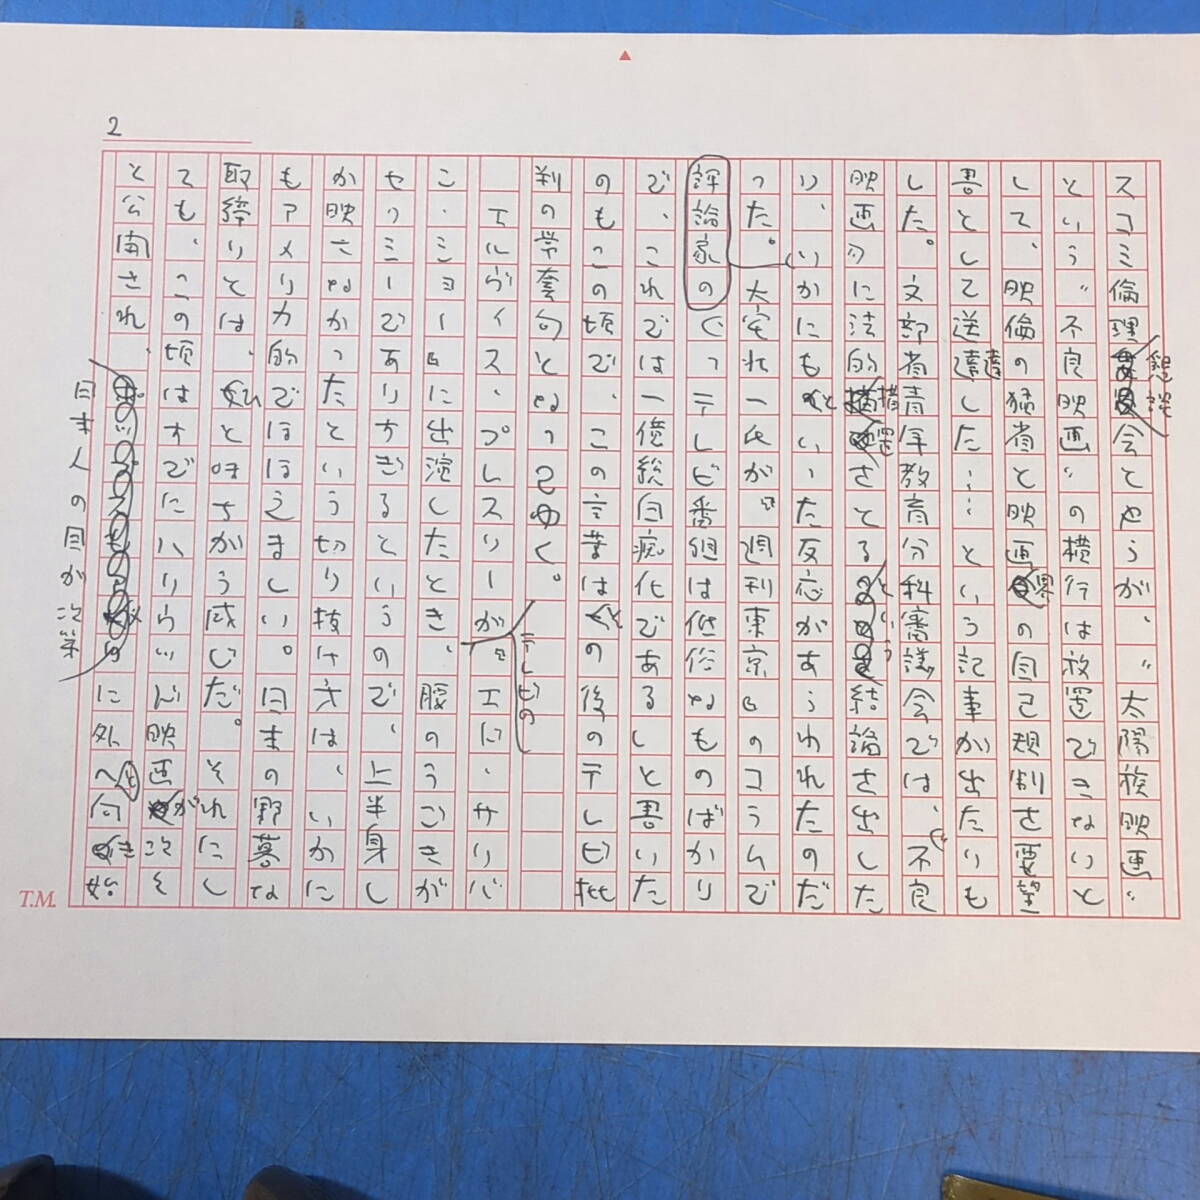 2
スコミ倫理懇談会とやらが、〝太陽族映画〟
という〝不良映画〟の横行は放置できないと
して、映倫の猛省と映画界の自己規制を要望
書として送達した……という記事が出たりも
した。文部省青年教育分科審議会では、不良
映画に法的措置をとるという結論を出した
り、いかにもといった反応があらわれたのだ
った。大宅壮一氏が『週刊東京』のコラムで
評論家の
で、これでは一億総白痴化であるしと書いた
のもこの頃で、この言葉はその後のテレビ批
判の常套句となってゆく。
エルヴィス・プレスリーがテレビの『エド・サリバ
ン・ショー』に出演したとき、腰のうごきが
セクシーでありすぎるというので、上半身し
か映さなかったという切り抜け方は、いかに
もアメリカ的でほほえましい。日本の野暮な
取締りとは、ひとあじちがう感じだ。それにし
ても、この頃はすでにハリウッド映画が次々
と公開され、
日本人の目が次第
に外へと向き始
T.M.